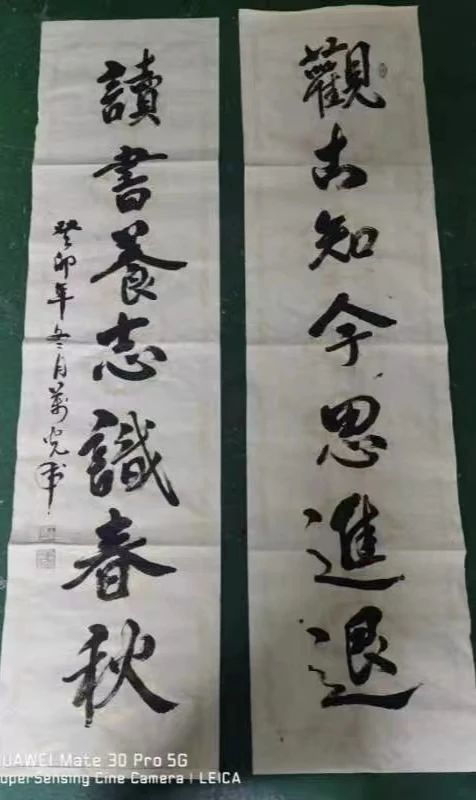 觀古知今思進退
讀書養志識春秋
癸卯年冬月萬光書
HUAWEI Mate 30 Pro 5G
SuperSensing Cine Camera | LEICA